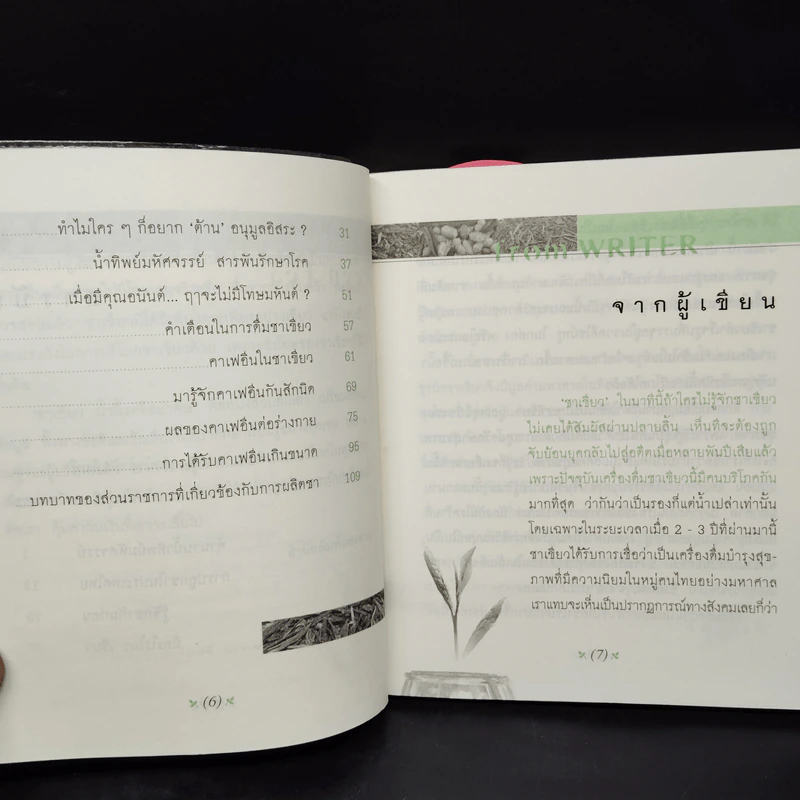 ทำไมใคร ๆ ก็อยาก ‘ต้าน’ อนุมูลอิสระ ? 31
น้ำทิพย์มหัศจรรย์ สารพันรักษาโรค 37
เมื่อมีคุณอนันต์... ฤๅจะไม่มีโทษมหันต์ ? 51
คำเตือนในการดื่มชาเขียว 57
คาเฟอีนในชาเขียว 61
มารู้จักคาเฟอีนกันสักนิด 69
ผลของคาเฟอีนต่อร่างกาย 75
การได้รับคาเฟอีนเกินขนาด 95
บทบาทของส่วนราชการที่เกี่ยวข้องกับการผลิตชา 109
(6)
from WRITER
จากผู้เขียน
‘ชาเขียว’ ในนาทีนี้ถ้าใครไม่รู้จักชาเขียว
ไม่เคยได้สัมผัสผ่านปลายลิ้น เห็นทีจะต้องถูก
จับย้อนยุคกลับไปสู่อดีตเมื่อหลายพันปีเสียแล้ว
เพราะปัจจุบันเครื่องดื่มชาเขียวนี้มีคนบริโภคกัน
มากที่สุด ว่ากันว่าเป็นรองก็แต่น้ำเปล่าเท่านั้น
โดยเฉพาะในระยะเวลาเมื่อ 2 - 3 ปีที่ผ่านมานี้
ชาเขียวได้รับการเชื่อว่าเป็นเครื่องดื่มบำรุงสุข-
ภาพที่มีความนิยมในหมู่คนไทยอย่างมหาศาล
เราแทบจะเห็นเป็นปรากฏการณ์ทางสังคมเลยก็ว่า
(7)